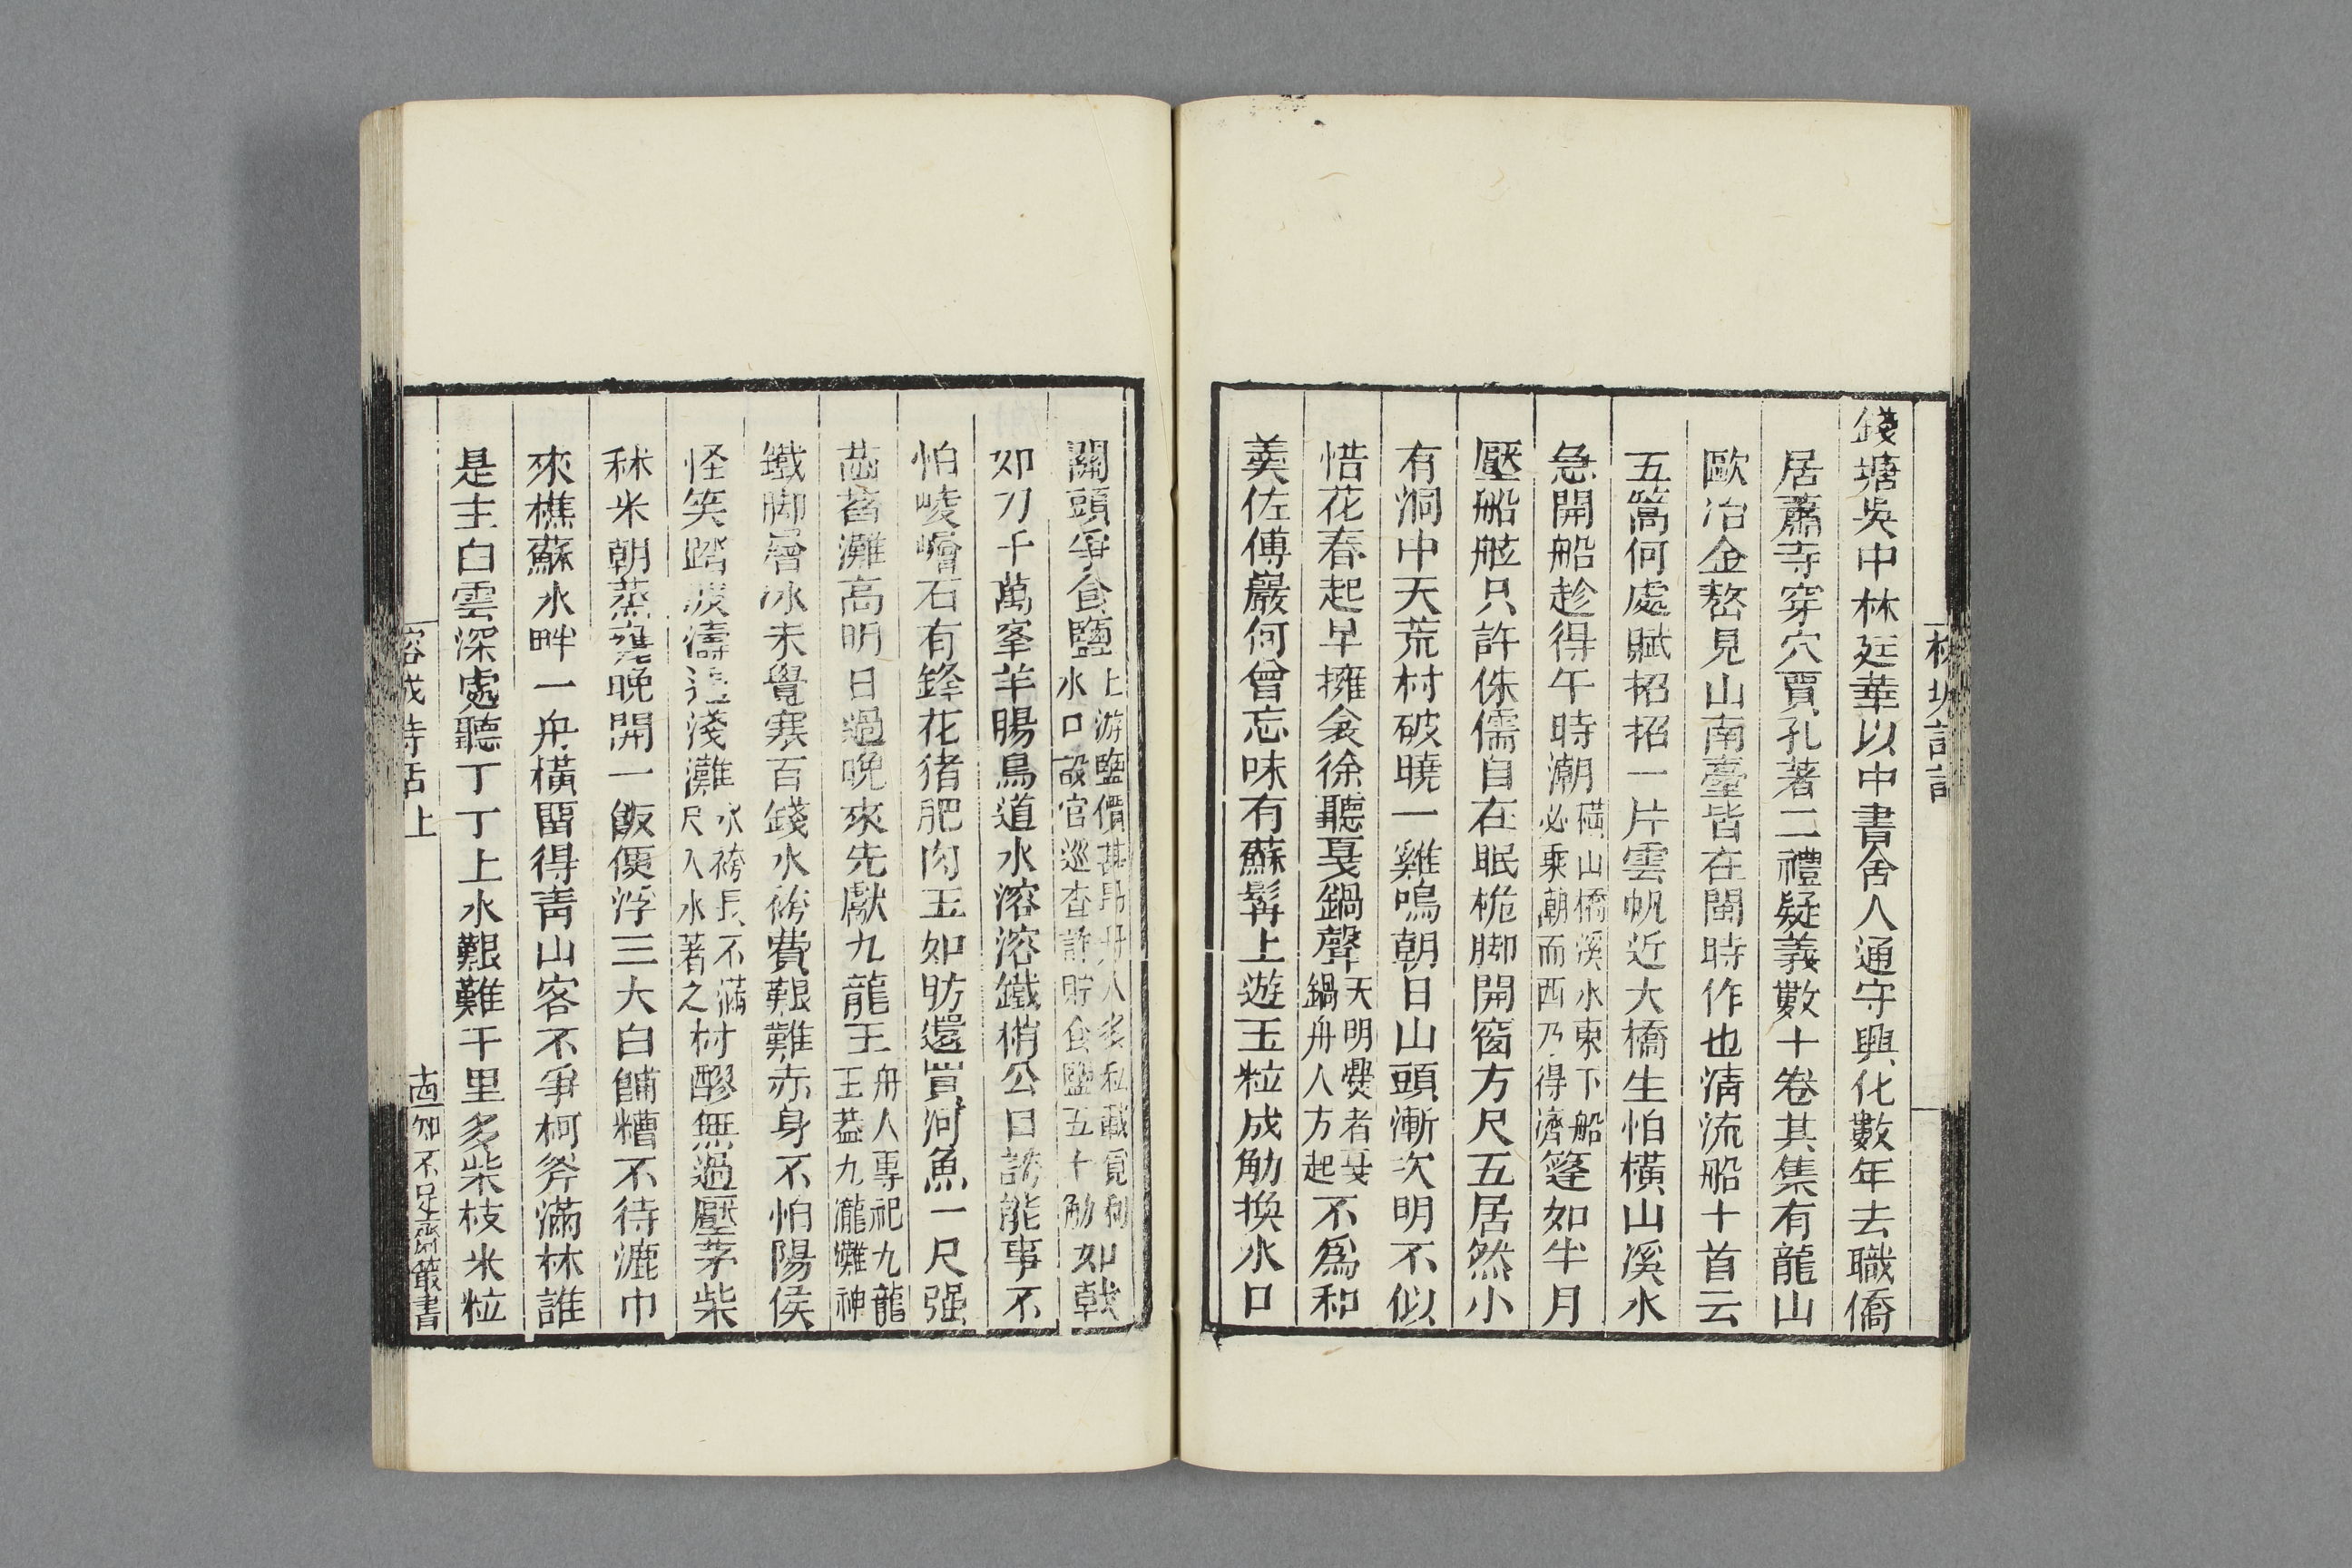 錢塘吳中林廷華以中書舍人通守興化數年去職僑
居蕭寺穿穴賈孔著二禮疑義數十卷其集有龍山
歐冶金嶅見山南臺皆在閩時作也淸流船十首云
五篙何處賦招招一片雲帆近大橋生怕橫山溪水
急開船趁得午時潮 橫山橋溪水東下船必乘潮而西乃得濟 篷如半月
壓船舷只許侏儒自在眠桅脚開窗方尺五居然小
有洞中天荒村破曉一雞鳴朝日山頭漸次明不似
惜花春起早擁衾徐聽戛鍋聲 天明爨者戛鍋舟人方起 不爲和
羹佐傅巖何曾忘味有蘇髯上遊玉粒成觔換水口
關頭爭食鹽 上游鹽價甚昂舟人多私藏覓利水口設官巡查許貯食鹽五十觔 如戟
如刀千萬峯羊腸鳥道水溶溶鐵梢公日誇能事不
怕崚嶒石有鋒花猪肥肉玉如昉還買河魚一尺强
茁茁灘高明日過晚來先獻九龍王 舟人專祀九龍王蓋九瀧灘神
鐵脚層冰未覺寒百錢水袴費艱難赤身不怕陽侯
怪笑踏波濤淺灘 水袴長不滿尺入水著之 村醪無過壓茅柴
秫米朝蒸甕晚開一飯便浮三大白餔糟不待漉巾
來樵蘇水畔一舟橫留得靑山客不爭柯斧滿林誰
是主白雲深處聽丁丁上水艱難千里多柴枝米粒
榕城詩話上
古
知不足齋叢書